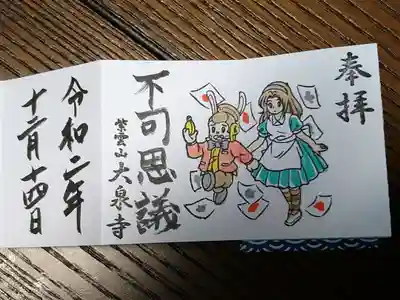 奉拝
不可思議
紫雲山大泉寺
令和二年
十二月十四日